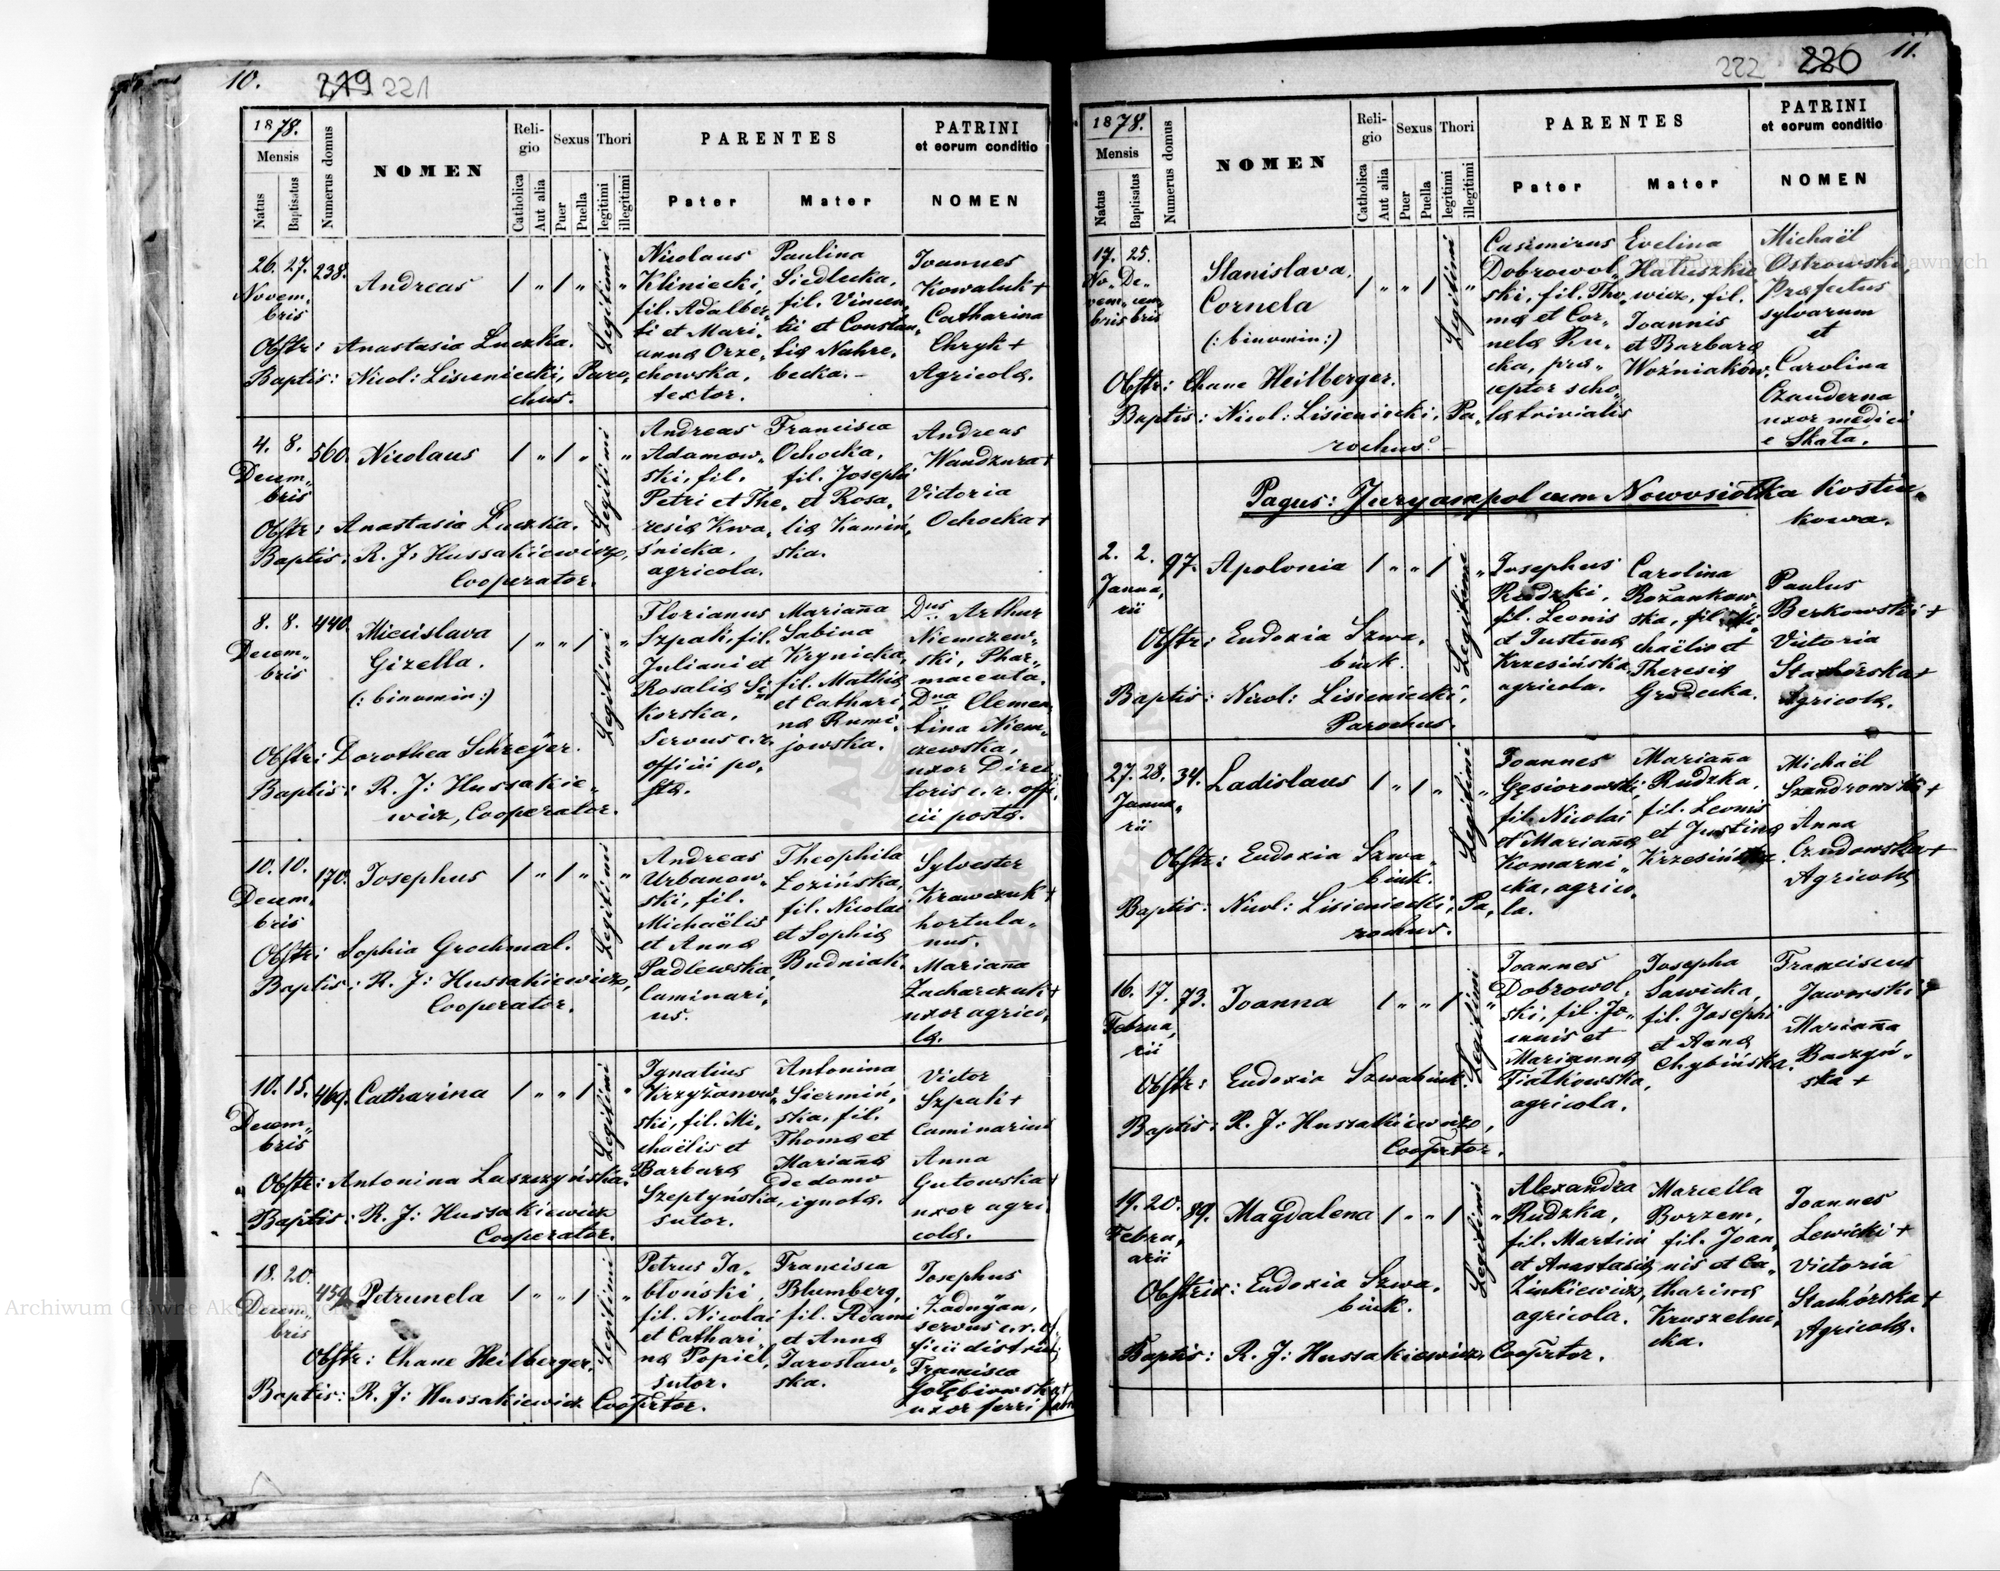 10. 219 221
1878.
Mensis
Natus
Baptisatus
Numerus domus
NOMEN
Religio
Catholica
Aut alia
Sexus
Puer
Puella
Thori
legitimi
illegitimi
PARENTES
Pater
Mater
PATRINI
et eorum conditio
NOMEN
26. 27. 238.
Novem„
bris
Andreas
/ „ / „ Legitimi „
Nicolaus
Kliniecki,
fil. Adalber„
ti et Mari„
anna Orze„
chowska,
textor.
Paulina
Siedlecka,
fil. Vincen„
tii et Constan„
tia Nahre„
becka.
Joannes
Kowaluk +
Catharina
Chryk +
Agricolæ.
Obstr: Anastasia Luczka.
Baptis: Nicol: Lisieniecki, Paro„
chus.
4. 8. 560.
Decem„
bris
Nicolaus
/ „ / „ Legitimi „
Andreas
Adamow„
ski, fil.
Petri et The„
resiæ Kwa„
śnicka.
agricola.
Francisca
Ochocka,
fil. Josephi
et Rosa„
liæ Kamiń„
ska.
Andreas
Wandzura +
Victoria
Ochocka +
Obstr: Anastasia Luczka.
Baptis: R. J: Hussakiewicz,
Cooperator.
8. 8. 440.
Decem„
bris
Miecislava
Gizella.
(: binomin:)
/ „ „ / Legitimi „
Florianus
Szpak, fil.
Juliani et
Rosaliæ Si„
korska,
servus c. r.
officii po„
stæ.
Marianna
Sabina
Krynicka,
fil. Mathiæ
et Cathari„
næ Rumi„
jowska.
Dnus Arthur
Niemczew„
ski, Phar„
maceuta.
Dna Clemen„
tina Niem„
czewska,
uxor Direc„
toris c. r. offi„
cii postæ.
Obstr: Dorothea Schreyer.
Baptis: R. J: Hussakie„
wicz, Cooperator.
10. 10. 170.
Decem„
bris
Josephus
/ „ / „ Legitimi „
Andreas
Urbanow„
ski, fil.
Michaëlis
et Annæ
Padlewska,
Caminari„
us.
Theophila
Łozińska,
fil. Nicolai
et Sophiæ
Budniak.
Sylvester
Krawczuk +
hortula„
nus.
Marianna
Zacharczuk +
uxor agrico„
læ.
Obstr: Sophia Grochmal.
Baptis: R. J: Hussakiewicz,
Cooperator.
10. 15. 469.
Decem„
bris
Catharina
/ „ „ / Legitimi „
Ignatius
Krzyżanow„
ski, fil. Mi„
chaëlis et
Barbaræ
Szeptyńska,
sutor.
Antonina
Siermiń„
ska, fil.
Thomæ et
Mariannæ
de domo
ignota.
Victor
Szpak +
Caminarius
Anna
Gutowska +
uxor agri„
colæ.
Obstr: Antonina Laszczyńska.
Baptis: R. J: Hussakiewicz
Cooperator.
18. 20. 459.
Decem„
bris
Petrunela
/ „ „ / Legitimi „
Petrus Ja„
błoński,
fil. Nicolai
et Cathari„
næ Popiel,
sutor.
Francisca
Blumberg,
fil. Adami
et Annæ
Jarosław„
ska.
Josephus
Zadnyan,
servus c. r. of„
ficii district:
Francisca
Gołębiowska +
uxor ferri
Obstr: Chane Heilberger.
Baptis: R. J: Hussakiewicz Cooprtor.
222 220 11.
1878.
Mensis
Natus
Baptisatus
Numerus domus
NOMEN
Religio
Catholica
Aut alia
Sexus
Puer
Puella
Thori
legitimi
illegitimi
PARENTES
Pater
Mater
PATRINI
et eorum conditio
NOMEN
17. 25.
No„ De„
vem„ cem„
bris bris
Stanislava,
Cornela
(: binomin:)
/ „ „ / Legitimi „
Casimirus
Dobrowol„
ski, fil. Tho„
mæ et Cor„
nelæ Ru„
cka, præ„
ceptor scho„
læ trivialis
Evelina
Hatuszkie„
wicz, fil.
Joannis
et Barbaræ
Woźniaków.
Michaël
Ostrowski,
Præfectus
sylvarum
et
Carolina
Czauderna
uxor medici
e Skała.
Obstr: Chane Heilberger.
Baptis: Nicol: Lisieniecki, Pa„
rochus.
Pagus: Juryampol cum Nowosiółka Kostiu„
kowa.
2. 2. 97.
Janua„
rii
Apolonia
/ „ „ / Legitimi „
Josephus
Rudzki,
fil. Leonis
et Justinæ
Krzesińska
agricola.
Carolina
Rożankow„
ska, fil. Mi„
chaëlis et
Theresiæ
Grodecka.
Paulus
Berkowski +
Victoria
Stachórska +
Agricolæ.
Obstr: Eudoxia Szwa„
biuk.
Baptis: Nicol: Lisieniecki,
Parochus.
27. 28. 34.
Janua„
rii
Ladislaus
/ „ / „ Legitimi „
Joannes
Gąsiorowski,
fil. Nicolai
et Mariannæ
Komarni„
cka, agrico„
la.
Marianna
Rudzka,
fil. Leonis
et Justinæ
Krzesińska
Michaël
Szandrowski +
Anna
Czudowska +
Agricolæ
Obstr: Eudoxia Szwa„
biuk.
Baptis: Nicol: Lisieniecki, Pa„
rochus.
16. 17. 73.
Februa„
rii
Joanna
/ „ „ / Legitimi „
Joannes
Dobrowol„
ski, fil. Jo„
annis et
Mariannæ
Fiałkowska,
agricola.
Josepha
Sawicka,
fil. Josephi
et Annæ
Chybińska.
Franciscus
Jaworski +
Marianna
Baczyń„
ska +
Obstr: Eudoxia Szwabiuk.
Baptis: R. J: Hussakiewicz,
Cooprtor.
19. 20. 89.
Febru„
arii
Magdalena
/ „ „ / Legitimi „
Alexandra
Rudzka,
fil. Martini
et Anastasiæ
Zinkiewicz,
agricola.
Marcella
Borzem,
fil. Joan„
nis et Ca„
tharinæ
Kruszelni„
cka.
Joannes
Lewicki +
Victoria
Stachórska +
Agricolæ.
Obstrix: Eudoxia Szwa„
biuk.
Baptis: R. J: Hussakiewicz, Cooprtor.